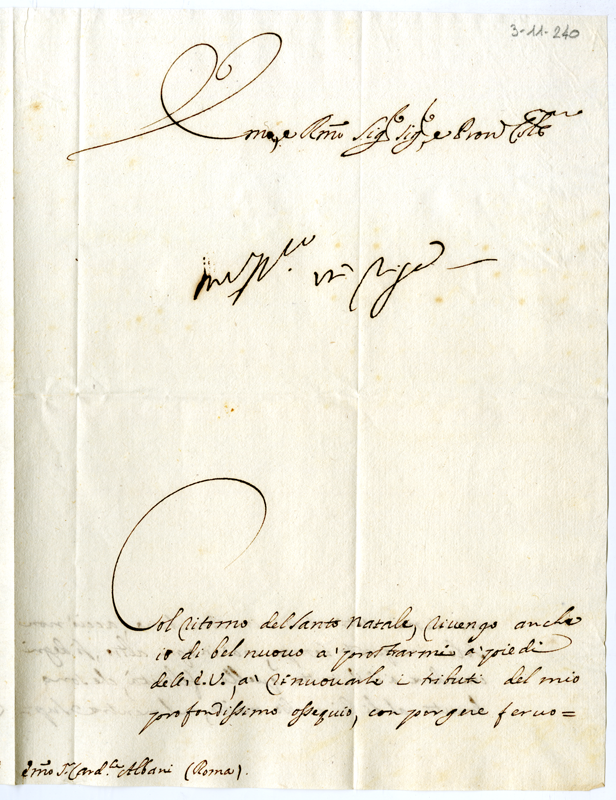 3-11-240
Emo, e Rmo Sigr Sigr, e Pron Colmo
Col ritorno del Santo Natale, rivengo anche
io di bel nuovo a' prostrarmi a' piedi
dell'E.V., a' rinuovarle i tributi del mio
profondissimo ossequio, con porgere feruo=
Emo Sr Card.le Albani (Roma).